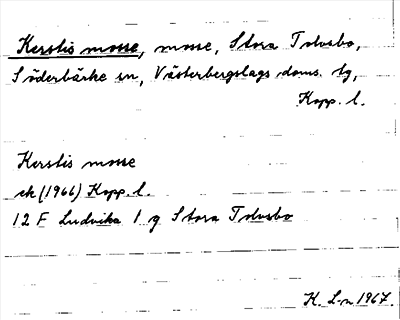 Kerstis mosse, mosse, Stora Tolvsbo,
Söderbärke sn, Västerbergslags doms. tg,
Kopp. l.
Kerstis mosse
ek (1966) Kopp. l.
12 F Ludvika 1 g Stora Tolvsbo
K. L-n 1967.